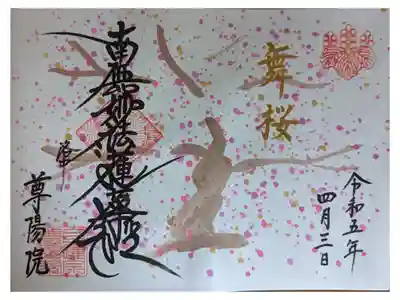 舞桜
令和五年
四月三日
南無妙法蓮華経
奉
尊陽院